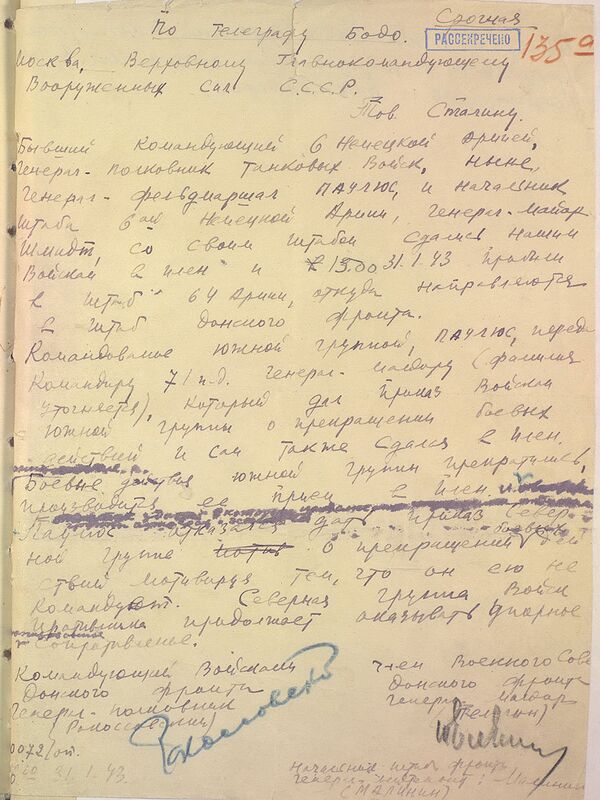 Срочная
По Телеграфу Бодо.
РАССЕКРЕЧЕНО
135а
Москва, Верховному Главнокомандующему
Вооруженных Сил С.С.С.Р.
Тов. Сталину.
Бывший Командующий 6 Немецкой Армией,
Генерал-полковник Танковых Войск, ныне,
Генерал-фельдмаршал ПАУЛЮС, и начальник
штаба 6ой Немецкой Армии, Генерал-Майор
Шмидт, со своим штабом сдались нашим
Войскам в плен и к 15.00 31.1.43 прибыли
в штаб 64 Армии, откуда направляются
в штаб Донского фронта.
Командование южной группой, ПАУЛЮС, переда
Командиру 71 п.д. Генерал-майору (фамилия
уточняется), который дал приказ Войскам
южной группы о прекращении боевых
действий и сам также сдался в плен.
Боевые действия южной группы прекратились,
производится ее прием в плен.
Паулюс отказался дать приказ Север-
ной группе о прекращении боевых дей
ствий мотивируя тем, что он ею не
командует. Северная группа Войск
противника продолжает оказывать упорное
сопротивление.
Командующий Войсками
Донского фронта
Генерал-полковник
(Рокоссовский)
Рокоссовский
Член Военного Сове
Донского фронта
Генерал-майор
(Телегин)
0072/оп.
31.1.43.
Начальник штаба фронта
Генерал-лейтенант: Малинин
(МАЛИНИН)